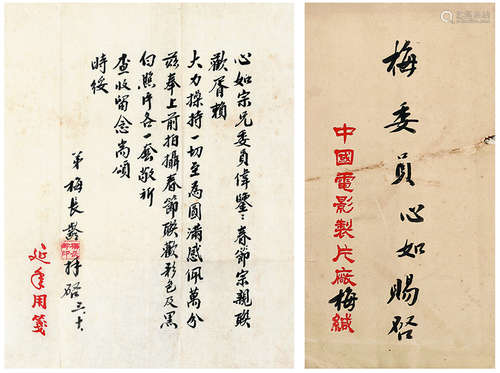 心如宗兄委員偉鑒：春節宗親聯
歡胥賴
大力操持一切至為圓滿感佩萬分
茲奉上前拍攝春節聯歡彩色及黑
白照片各一套敬祈
查收留念尚頌
時綏
弟梅長齡拜啓
延年用箋
梅委員心如賜啓
中國電影製片廠梅緘